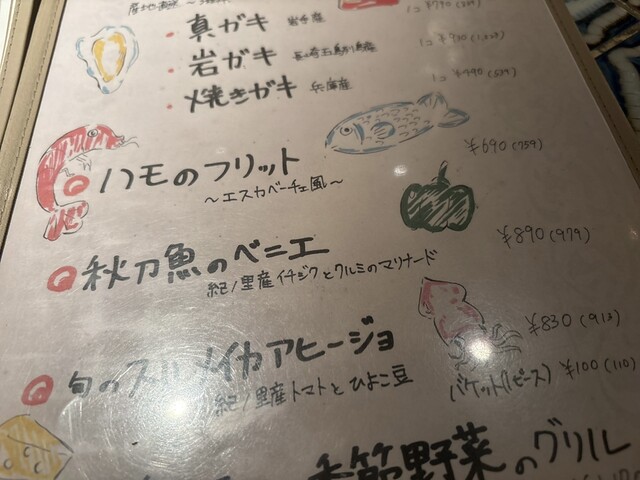 真ガキ 岩手産
岩ガキ 長崎五島列島産
焼きガキ 兵庫産 1コ ¥490(539)
ハモのフリット ¥690(759)
～エスカベーチェ風～
秋刀魚のベニエ ¥890(979)
紀ノ里産イチジクとクルミのマリナード
旬のスルメイカアヒージョ ¥830(913)
紀ノ里産トマトとひよこ豆 バケット(1ピース) ¥100(110)
季節野菜のグリル